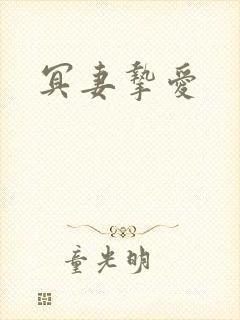 冥妻摯愛
童光明